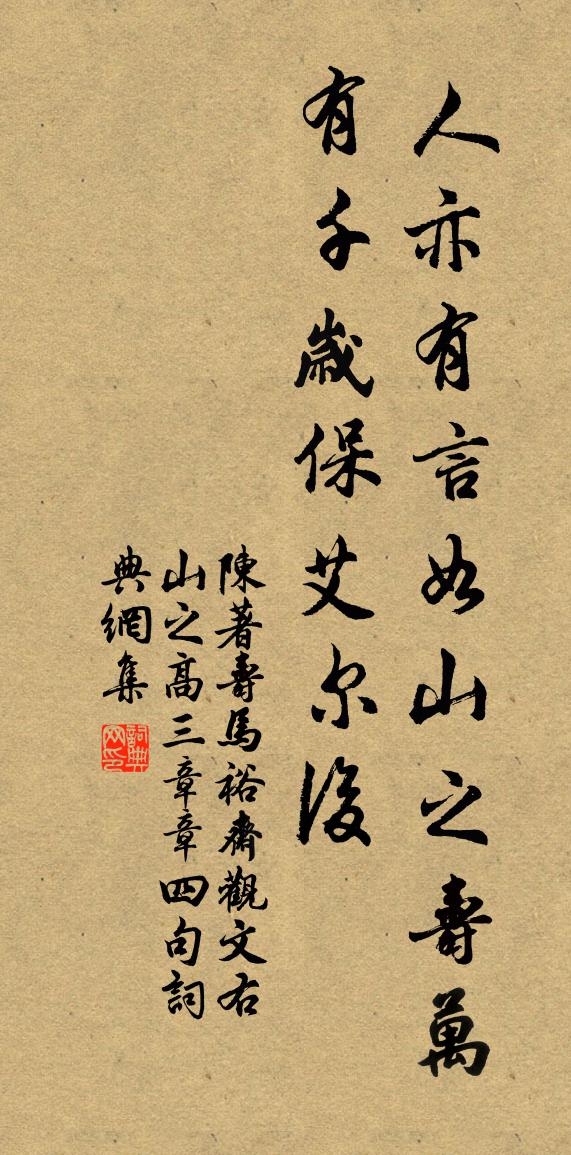 人亦有言如山之壽萬
有千歲保艾尔後
陳著壽馬裕齋觀文右
山之高三章章四句詞
典網集
詞典
网印